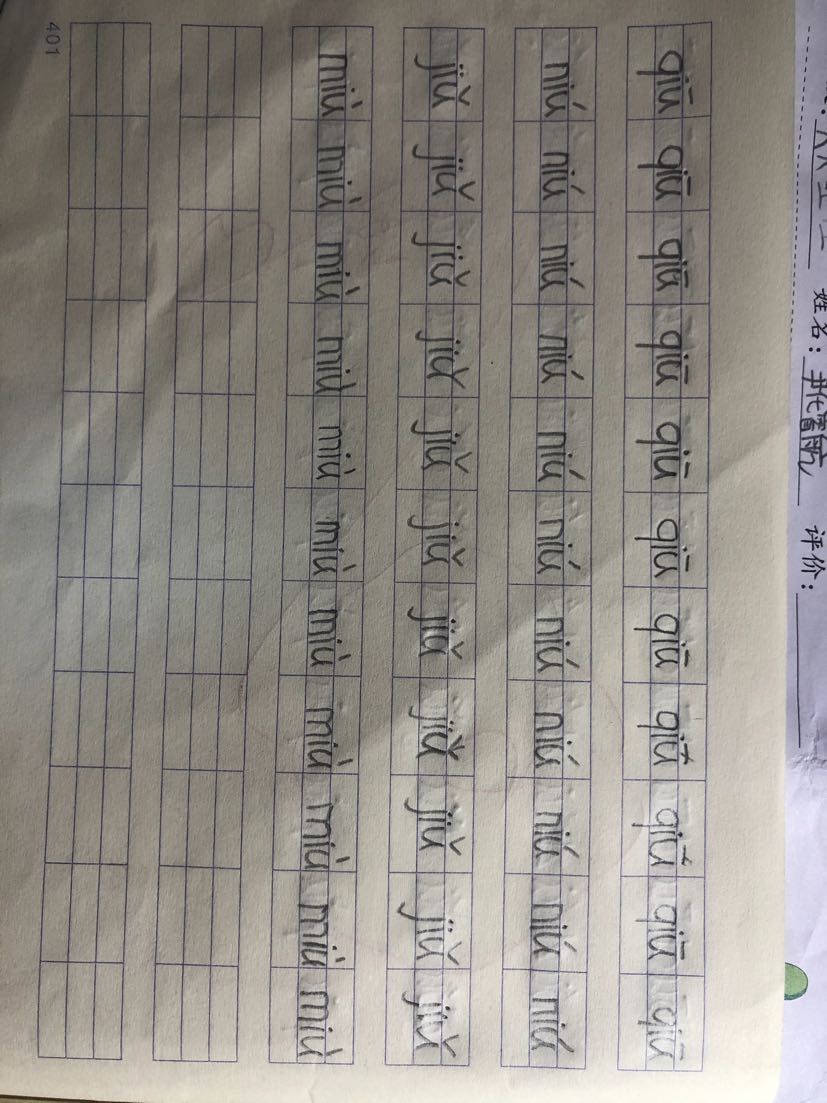 姓名： 评价：
qiū qiū qiū qiū qiū qiū qiū qiū qiū qiū qiū
niú niú niú niú niú niú niú niú niú niú niú
jiǔ jiǔ jiǔ jiǔ jiǔ jiǔ jiǔ jiǔ jiǔ jiǔ jiǔ
miù miù miù miù miù miù miù miù miù miù miù
401